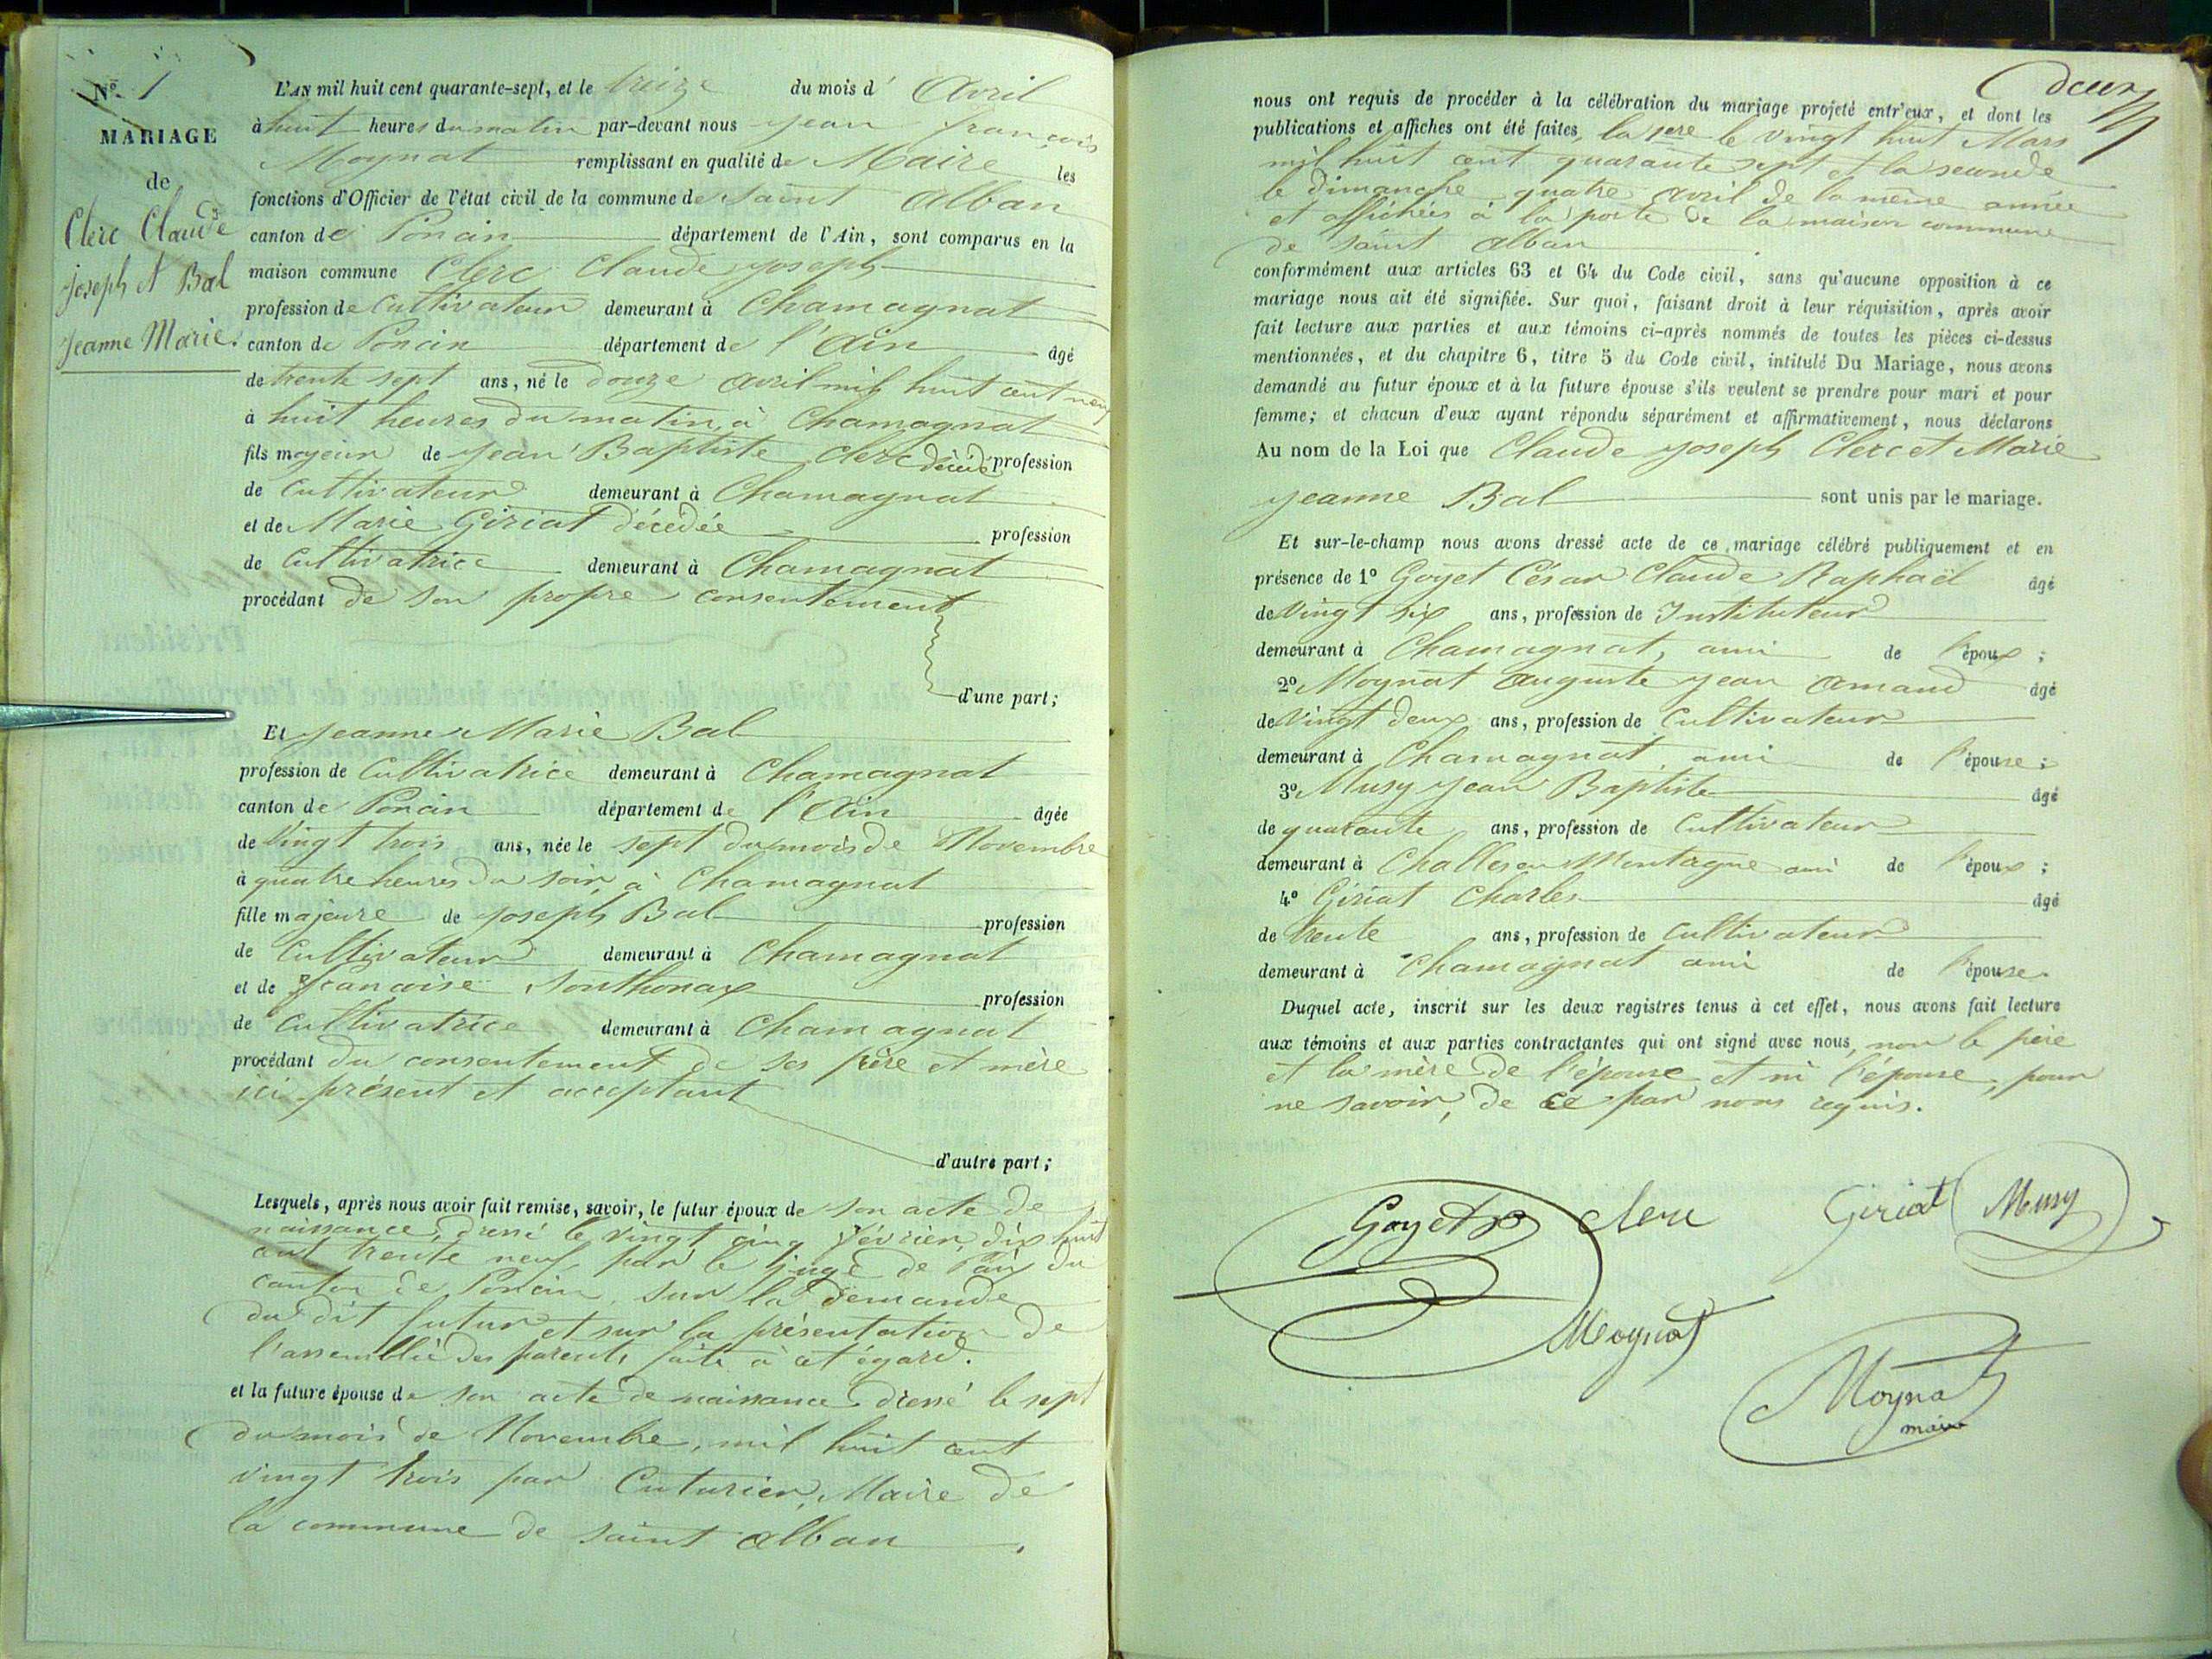 N.º 1
MARIAGE
de
Clerc Claude
Joseph et Bal
Jeanne Marie.
L'AN mil huit cent quarante-sept, et le treize du mois d' Avril
à huit heures du matin par-devant nous Jean françois
Moynat remplissant en qualité de Maire les
fonctions d'Officier de l'état civil de la commune de Saint Alban
canton de Poncin département de l'Ain, sont comparus en la
maison commune Clerc Claude Joseph
profession de Cultivateur demeurant à Chamagnat
canton de Poncin département de l'Ain âgé
de trente sept ans, né le douze avril mil huit cent neuf
à huit heures du matin, à Chamagnat
fils majeur de Jean Baptiste Clerc décédé profession
de Cultivateur demeurant à Chamagnat
et de Marie Giriat décédée profession
de Cultivatrice demeurant à Chamagnat
procédant de son propre consentement
d'une part;
Et Jeanne Marie Bal
profession de Cultivatrice demeurant à Chamagnat
canton de Poncin département de l'Ain âgée
de Vingt trois ans, née le sept du mois de Novembre
à quatre heures du soir, à Chamagnat
fille majeure de Joseph Bal profession
de Cultivateur demeurant à Chamagnat
et de françoise Sonthonax profession
de Cultivatrice demeurant à Chamagnat
procédant du consentement de ses père et mère
ici présent et acceptant
d'autre part;
Lesquels, après nous avoir fait remise, savoir, le futur époux de son acte de
naissance, dressé le vingt cinq février, dix huit
cent trente neuf, par le juge de Paix du
canton de Poncin, sur la demande
du dit futur et sur la présentation de
l'assemblée des parents faite à cet égard.
et la future épouse de son acte de naissance dressé le sept
du mois de Novembre, mil huit cent
vingt trois par Cuturier, Maire de
la commune de saint alban.
deux
nous ont requis de procéder à la célébration du mariage projeté entr'eux, et dont les
publications et affiches ont été faites, la 1ere le vingt huit Mars
mil huit cent quarante sept et la seconde
le dimanche quatre avril de la même année
et affichées à la porte de la maison commune
de saint alban
conformément aux articles 63 et 64 du Code civil, sans qu'aucune opposition à ce
mariage nous ait été signifiée. Sur quoi, faisant droit à leur réquisition, après avoir
fait lecture aux parties et aux témoins ci-après nommés de toutes les pièces ci-dessus
mentionnées, et du chapitre 6, titre 5 du Code civil, intitulé Du Mariage, nous avons
demandé au futur époux et à la future épouse s'ils veulent se prendre pour mari et pour
femme; et chacun d'eux ayant répondu séparément et affirmativement, nous déclarons
Au nom de la Loi que Claude Joseph Clerc et Marie
Jeanne Bal sont unis par le mariage.
Et sur-le-champ nous avons dressé acte de ce mariage célébré publiquement et en
présence de 1º Goyet César Claude Raphaël âgé
de Vingt six ans, profession de Instituteur
demeurant à Chamagnat, ami de l'époux;
2º Moynat Auguste Jean Amand âgé
de Vingt deux ans, profession de Cultivateur
demeurant à Chamagnat, ami de l'épouse;
3º Musy Jean Baptiste âgé
de quarante ans, profession de Cultivateur
demeurant à Challes en Montagne ami de l'époux;
4º Giriat Charles âgé
de trente ans, profession de Cultivateur
demeurant à Chamagnat ami de l'épouse.
Duquel acte, inscrit sur les deux registres tenus à cet effet, nous avons fait lecture
aux témoins et aux parties contractantes qui ont signé avec nous, non le père
et la mère de l'épouse et ni l'épouse, pour
ne savoir, de ce par nous requis.
Goyet Clerc Giriat Musy
Moynat
Moynat
maire